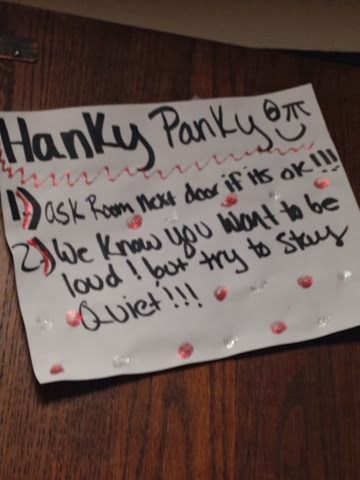 Hanky Panky Θπ
1) ask Room next door if its ok!!!
2) We know you want to be
loud! but try to stay
Quiet!!!